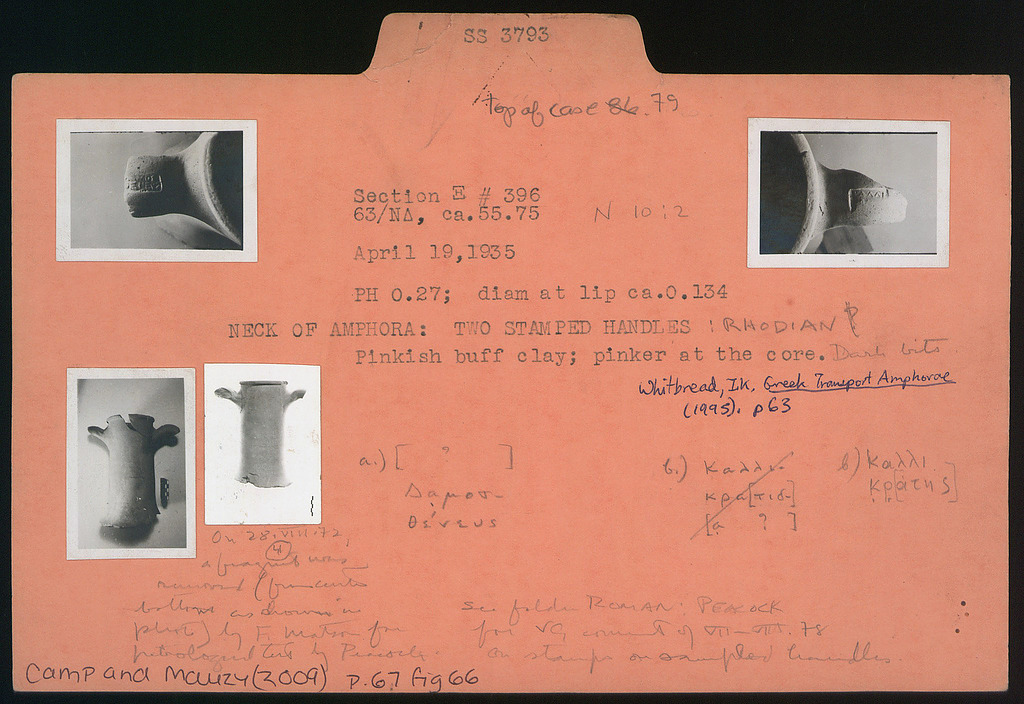 SS 3793
top of case 86. 79
Section E # 396
63/ΝΔ, ca.55.75 N 10:2
April 19,1935
PH 0.27; diam at lip ca.0.134
NECK OF AMPHORA: TWO STAMPED HANDLES : RHODIAN
Pinkish buff clay; pinker at the core. Dark bits
Whitbread, IK, Greek Transport Amphorae
(1995). p63
a.) [ ? ]
Δαμοσ-
θένευς
b.) Καλλι-
κρα[τιδ-]
[α ? ]
b) Καλλι
κρ[άτης]
On 28.VIII.72,
4
a fragment was
removed (from
bottom as shown in
photo) by F. Matson for
petrological test by Peacock.
see folder ROMAN: PEACOCK
for VG comment of VII-VIII.78
on stamps on sampled handles.
Camp and Mauzy (2009) p.67 fig 66